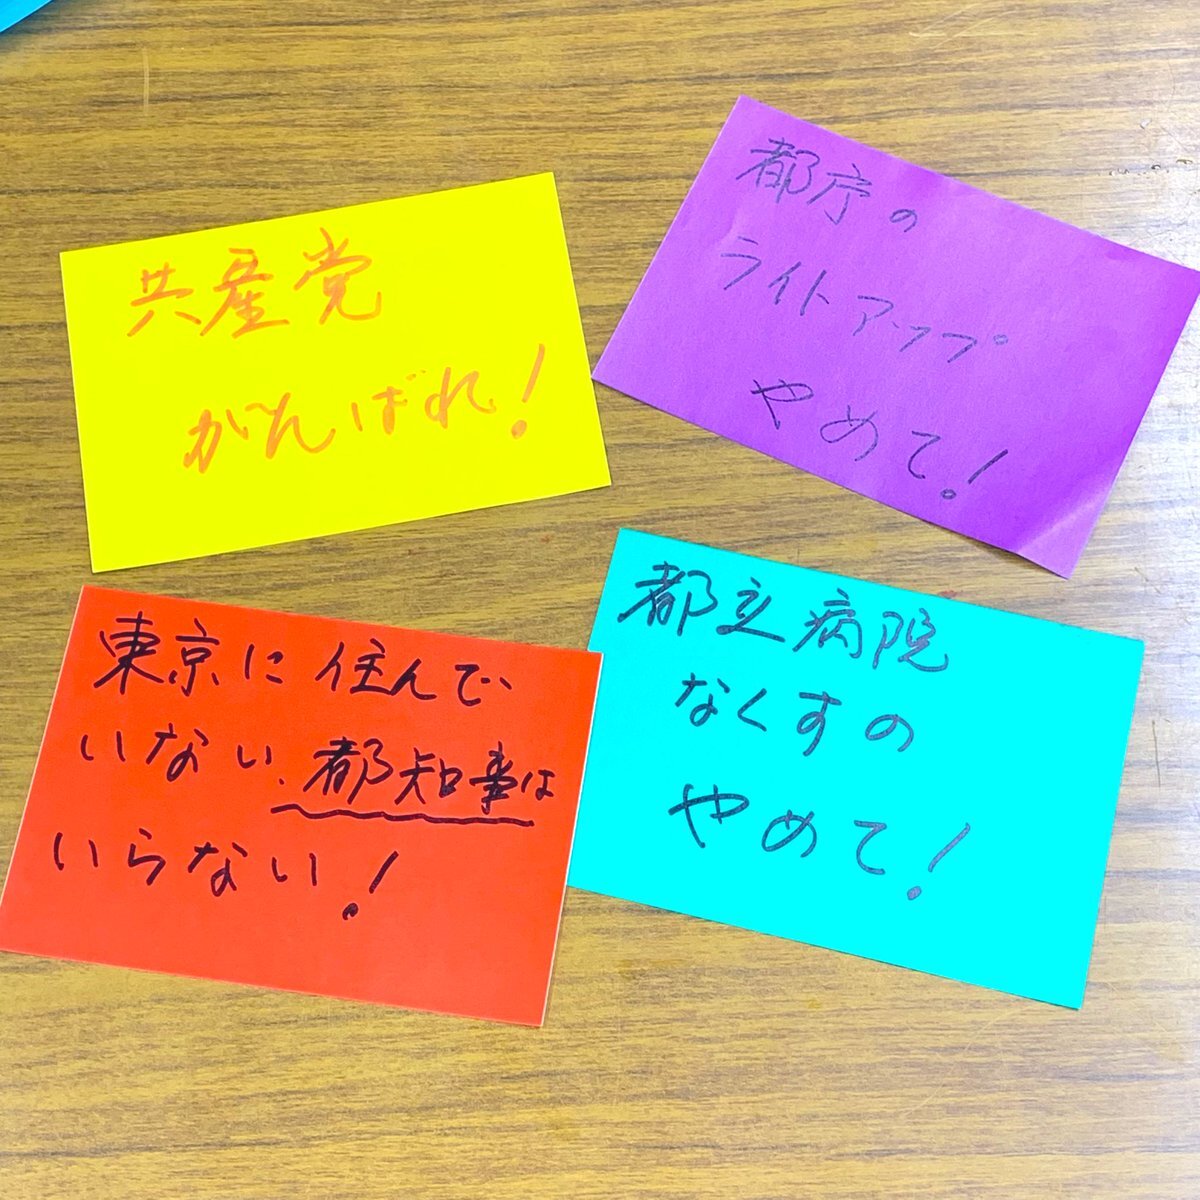 共産党
がんばれ!
都庁の
ライトアップ
やめて!
東京に住んで
いない、都知事は
いらない!
都立病院
なくすの
やめて!